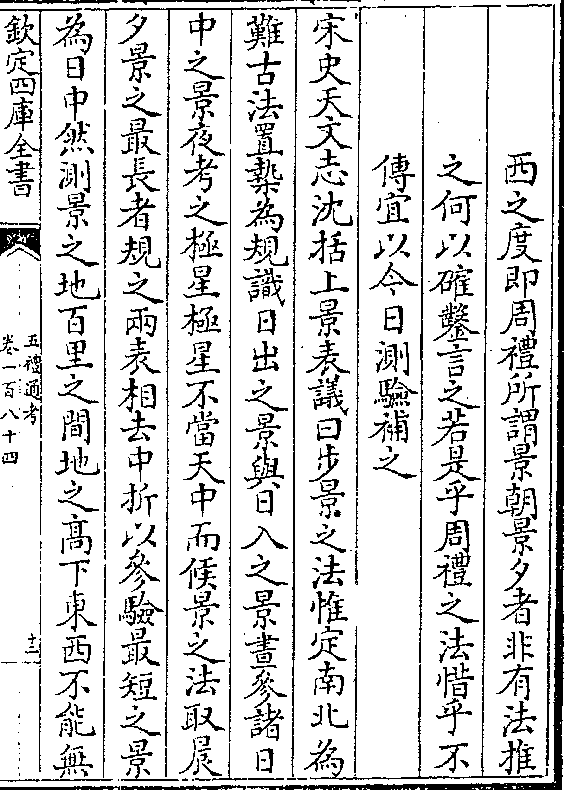 西之度即周禮所謂景朝景夕者非有法推
之何以確鑿言之若是乎周禮之法惜乎不
傳宜以今日測驗補之
宋史天文志沈括上景表議曰步景之法惟定南北為
難古法置槷為規識日出之景與日入之景晝參諸日
中之景夜考之極星極星不當天中而候景之法取晨
夕景之最長者規之兩表相去中折以參驗最短之景
為日中然測景之地百里之間地之高下東西不能無
欽定四庫全書
五禮通考
卷一百八十四
十三